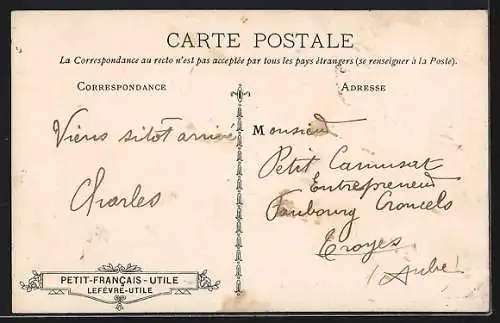 CARTE POSTALE
La Correspondance au recto n'est pas acceptée par tous les pays étrangers (se renseigner à la Poste).
CORRESPONDANCE
Viens sitôt arrivé
Charles
PETIT-FRANÇAIS-UTILE
LEFÈVRE-UTILE
ADRESSE
Monsieur
Petit Camusat
Entrepreneur
Faubourg Croncels
Troyes
Aube